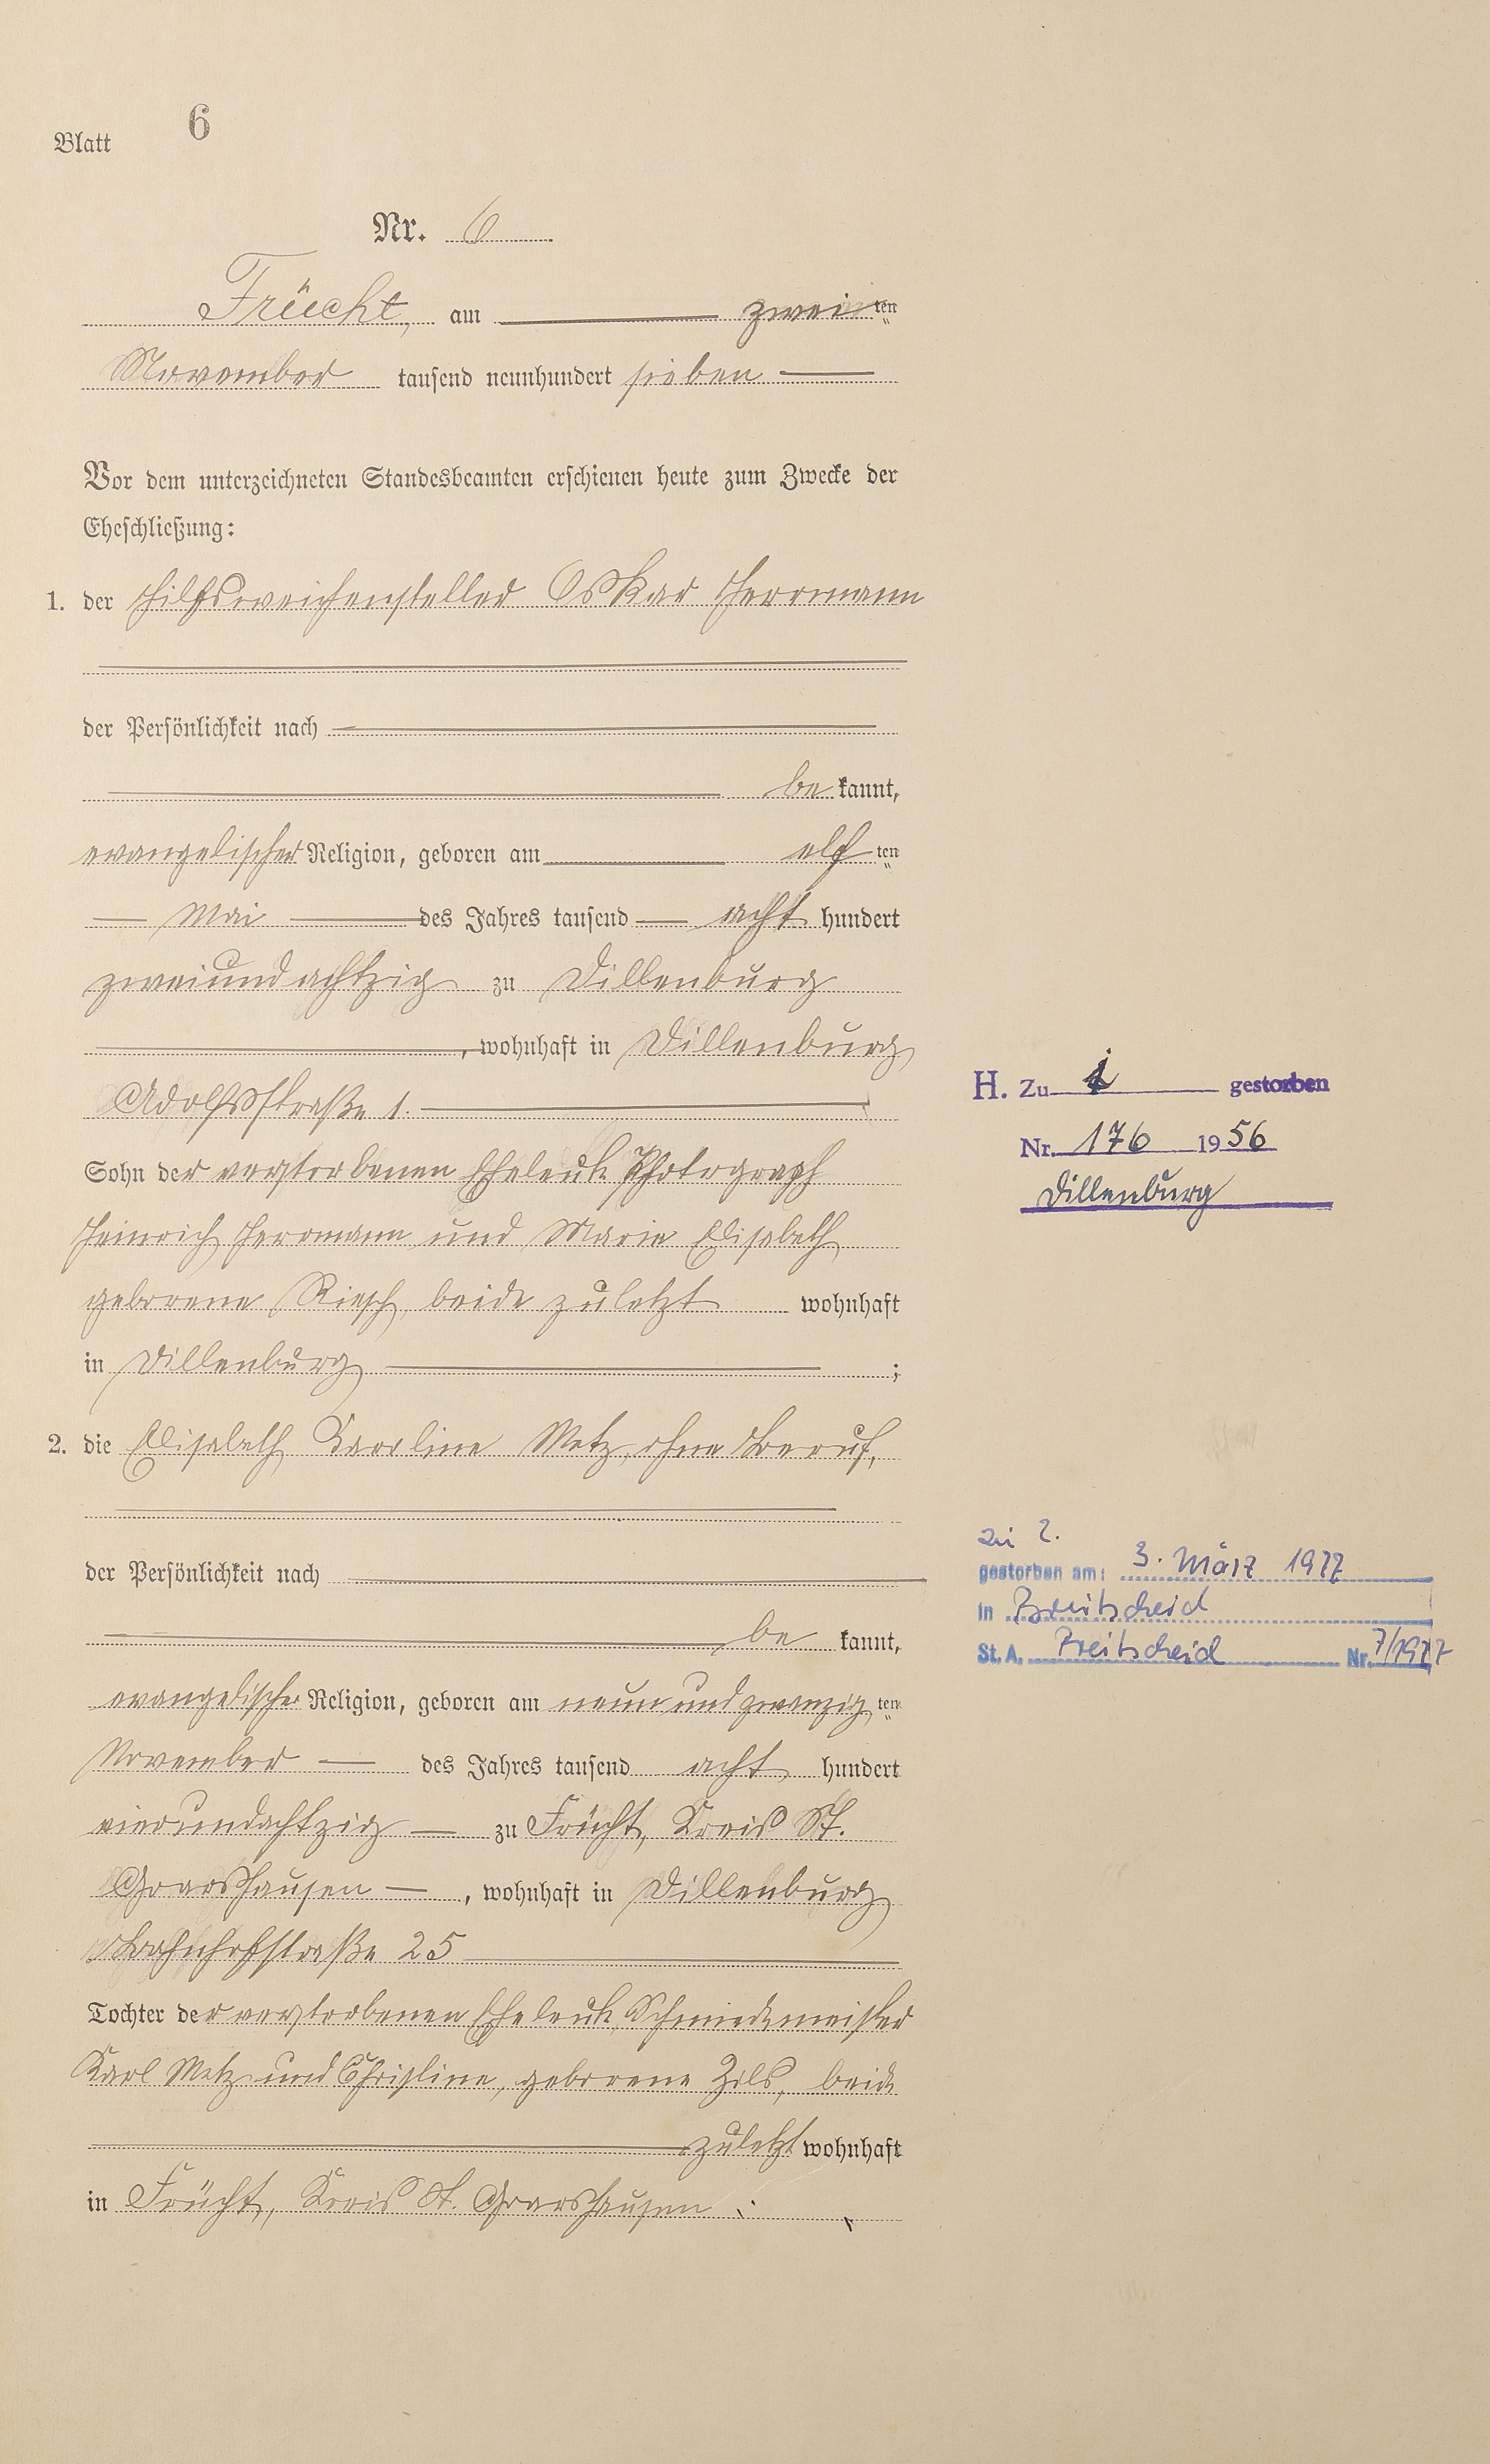 Blatt 6
Nr. 6
Frücht, am zweiten
November tausend neunhundert sieben
Vor dem unterzeichneten Standesbeamten erschienen heute zum Zwecke der
Eheschließung:
1. der Hilfsweichensteller Oskar Herrmann
der Persönlichkeit nach
be kannt,
evangelischer Religion, geboren am elf ten
Mai des Jahres tausend acht hundert
zweiundachtzig zu Dillenburg
, wohnhaft in Dillenburg
Adolfsstraße 1.
Sohn der verstorbenen Eheleute Photograph
Heinrich Herrmann und Marie Elisabeth
geborene Riesch, beide zuletzt wohnhaft
in Dillenburg ;
2. die Elisabeth Karoline Metz, ohne Beruf,
der Persönlichkeit nach
be kannt,
evangelischer Religion, geboren am neun und zwanzig ten
November des Jahres tausend acht hundert
vierundachtzig zu Frücht, Kreis St.
Goarshausen , wohnhaft in Dillenburg
Bahnhofstraße 25
Tochter der verstorbenen Eheleute, Schmiedemeister
Karl Metz und Christine, geborene Zils, beide
zuletzt wohnhaft
in Frücht, Kreis St. Goarshausen.
H. Zu 1 gestorben
Nr. 176 1956
Dillenburg
Zu 2.
gestorben am: 3. März 1977
in Breitscheid
St. A. Breitscheid Nr. 7/1977